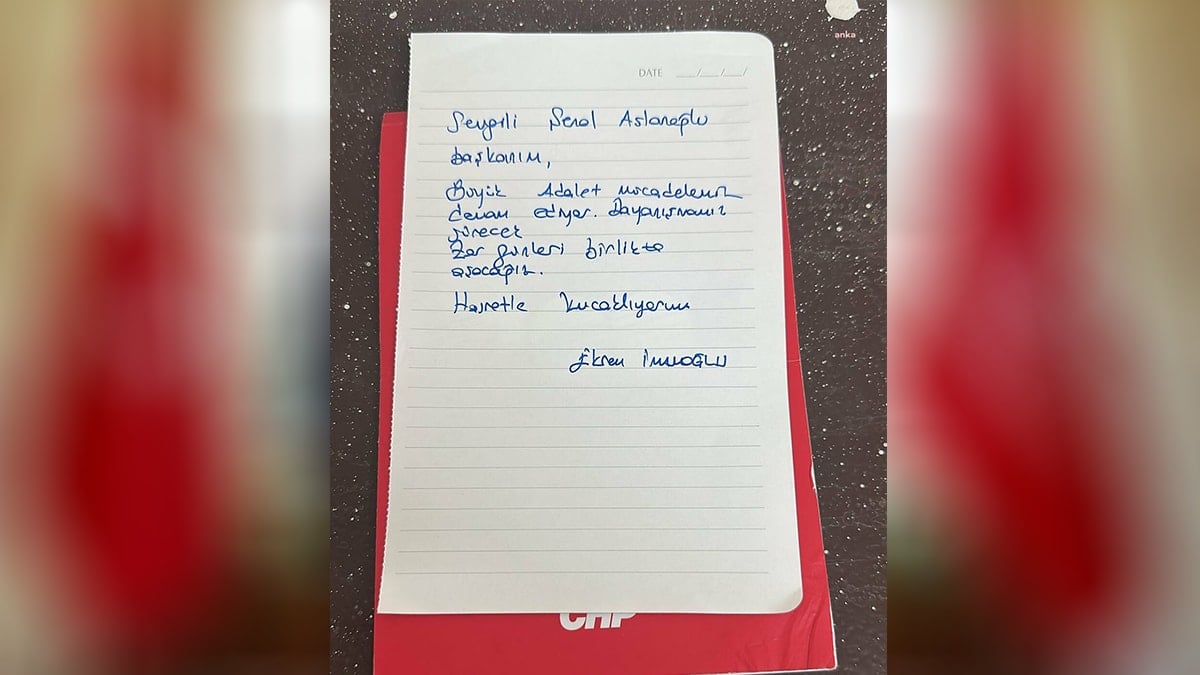 anka
DATE __/__/__/
Sevgili Şenol Aslanoğlu
Başkanım,
Büyük Adalet mücadelemiz
devam ediyor. Dayanışmamız
sürecek
Zor günleri birlikte
aşacağız.
Hasretle kucaklıyorum
Ekrem İMAMOĞLU
CHP